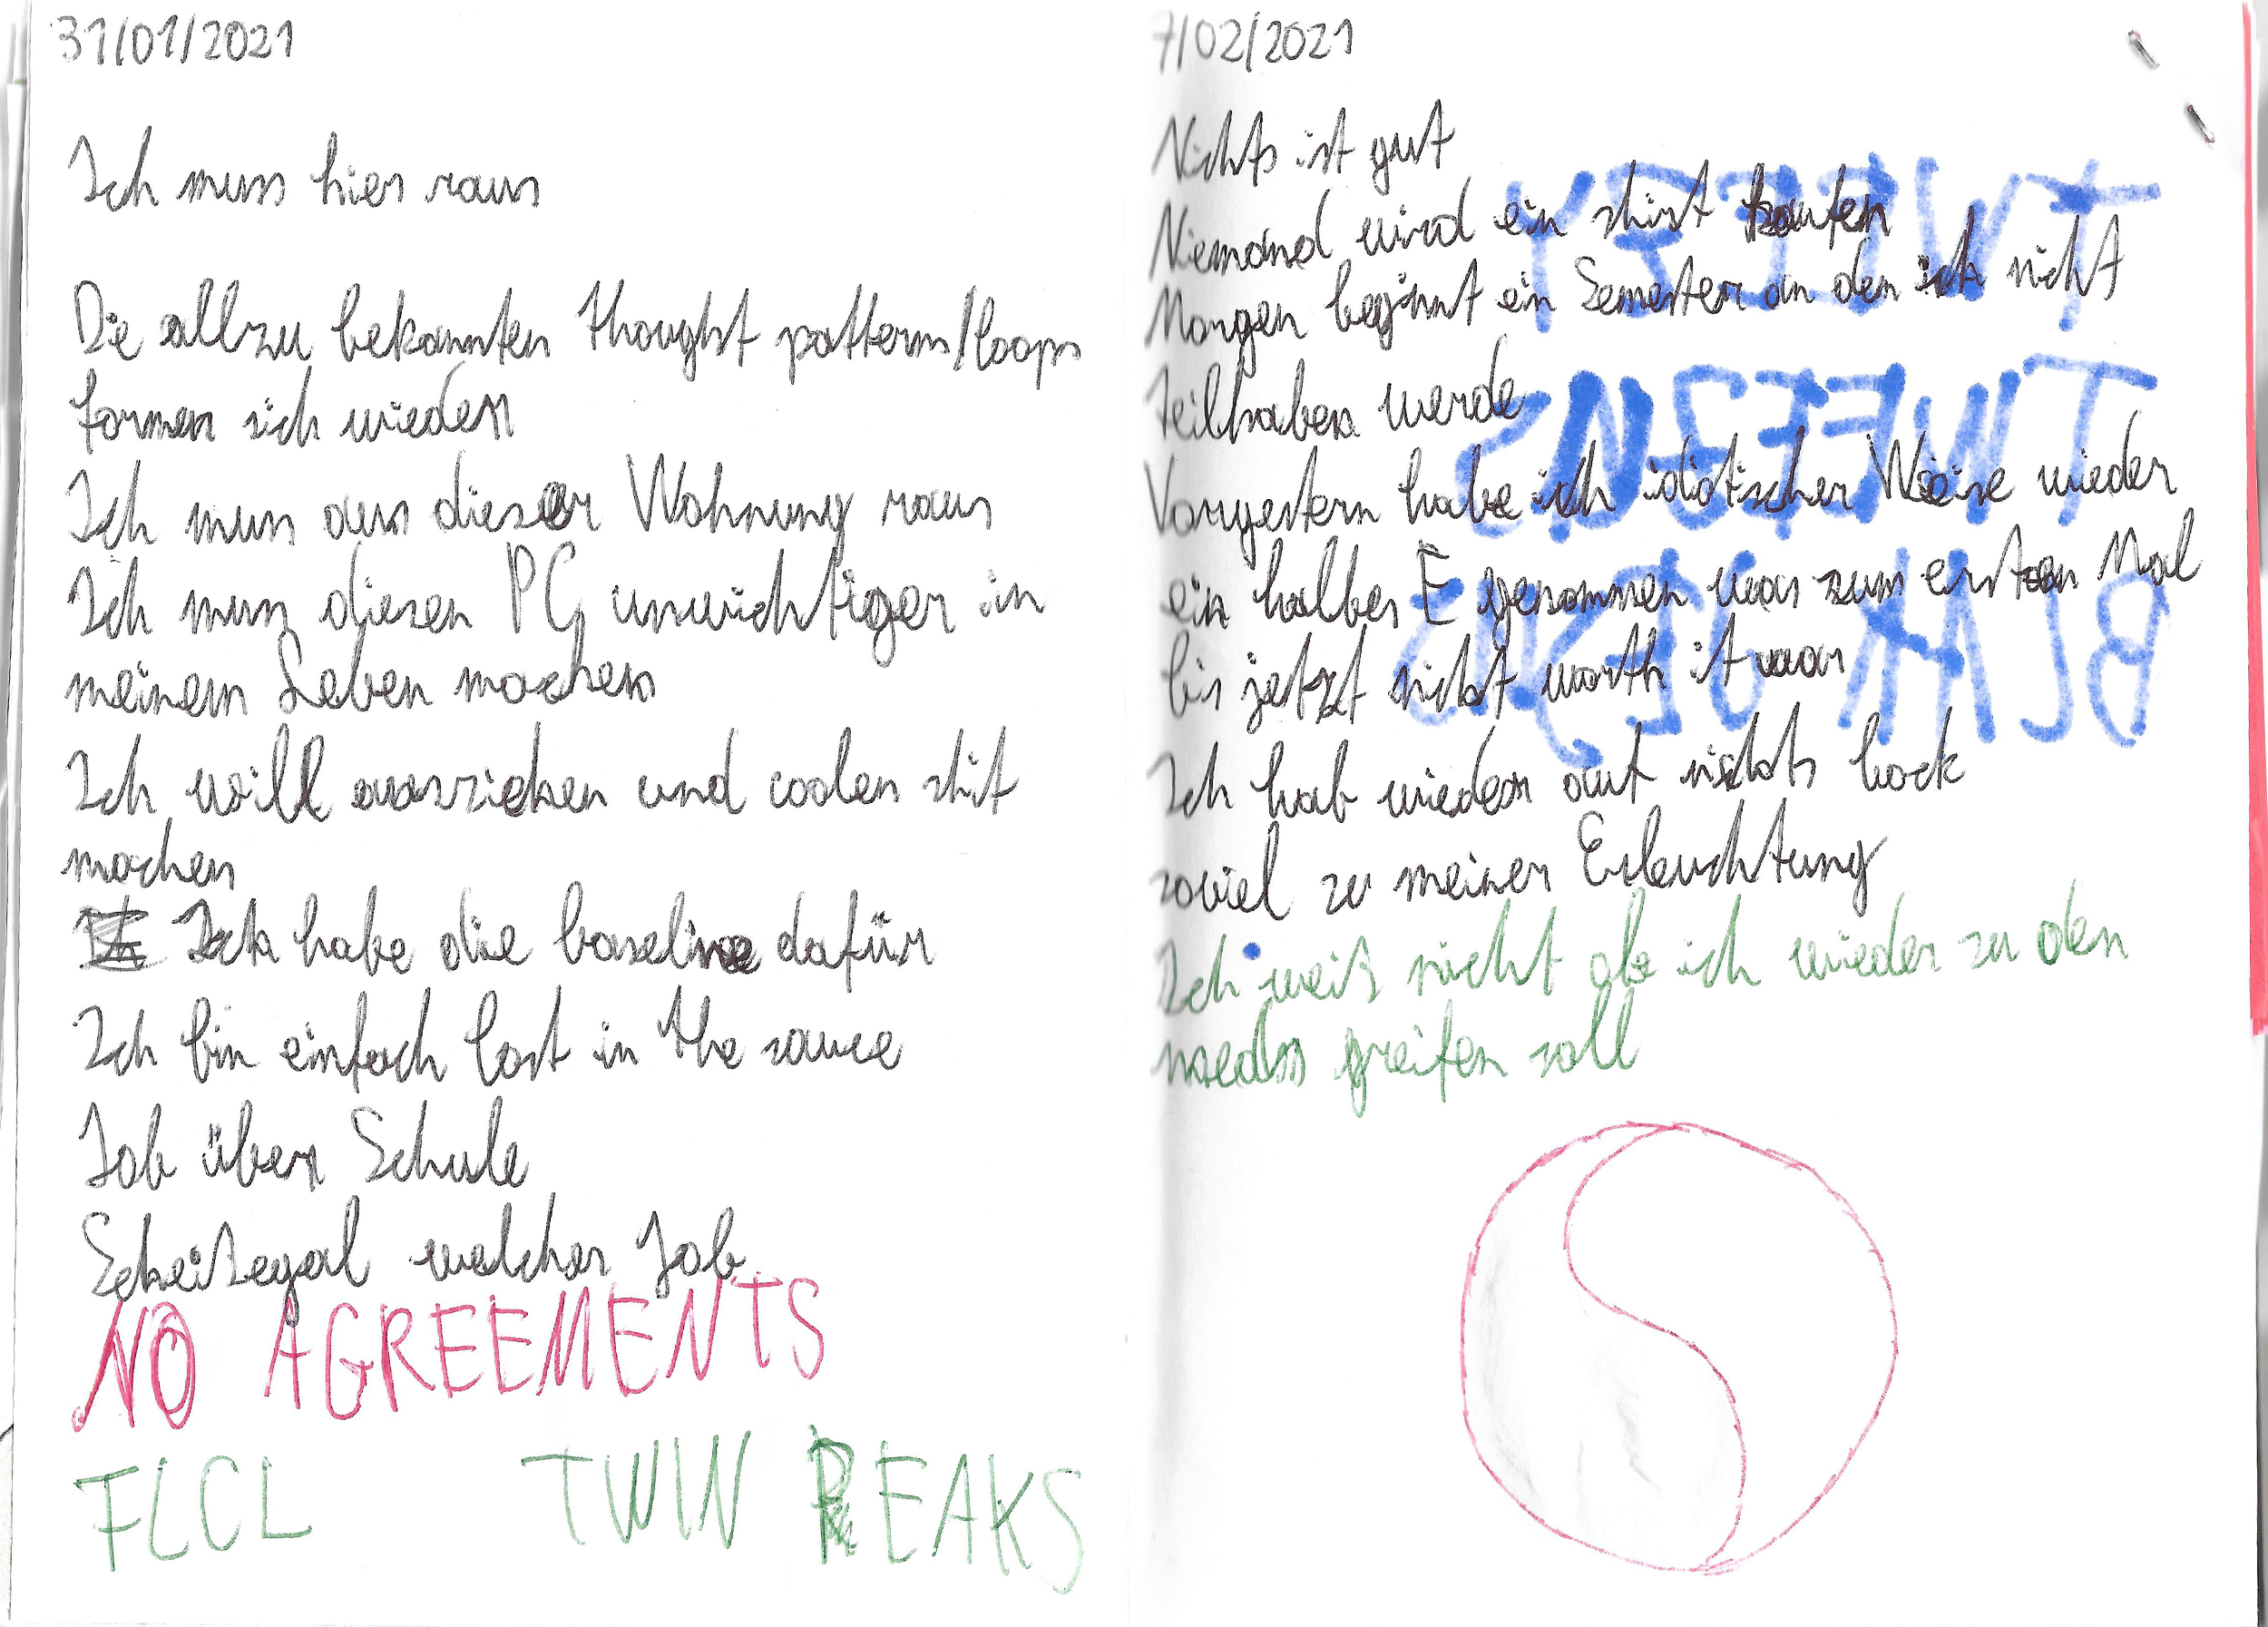 31/01/2021
Ich muss hier raus
Die allzu bekannten thought patterns/loops
formen sich wieder
Ich muss aus dieser Wohnung raus
Ich muss diesen PC unwichtiger in
meinem Leben machen
Ich will ausziehen und coolen shit
machen
Ich habe die baseline dafür
Ich bin einfach lost in the sauce
Job über Schule
Scheißegal welcher Job
NO AGREEMENTS
FLCL TWIN PEAKS
7/02/2021
Nichts ist gut
Niemand wird ein shirt kaufen
Morgen beginnt ein Semester an den ich nicht
teilhaben werde
Vorgestern habe ich idiotischer Weise wieder
ein halbes E genommen was zum ersten Mal
bis jetzt nicht worth it war
Ich hab wieder auf nichts bock
soviel zu meiner Erleuchtung
Ich weiß nicht ob ich wieder zu den
meds greifen soll